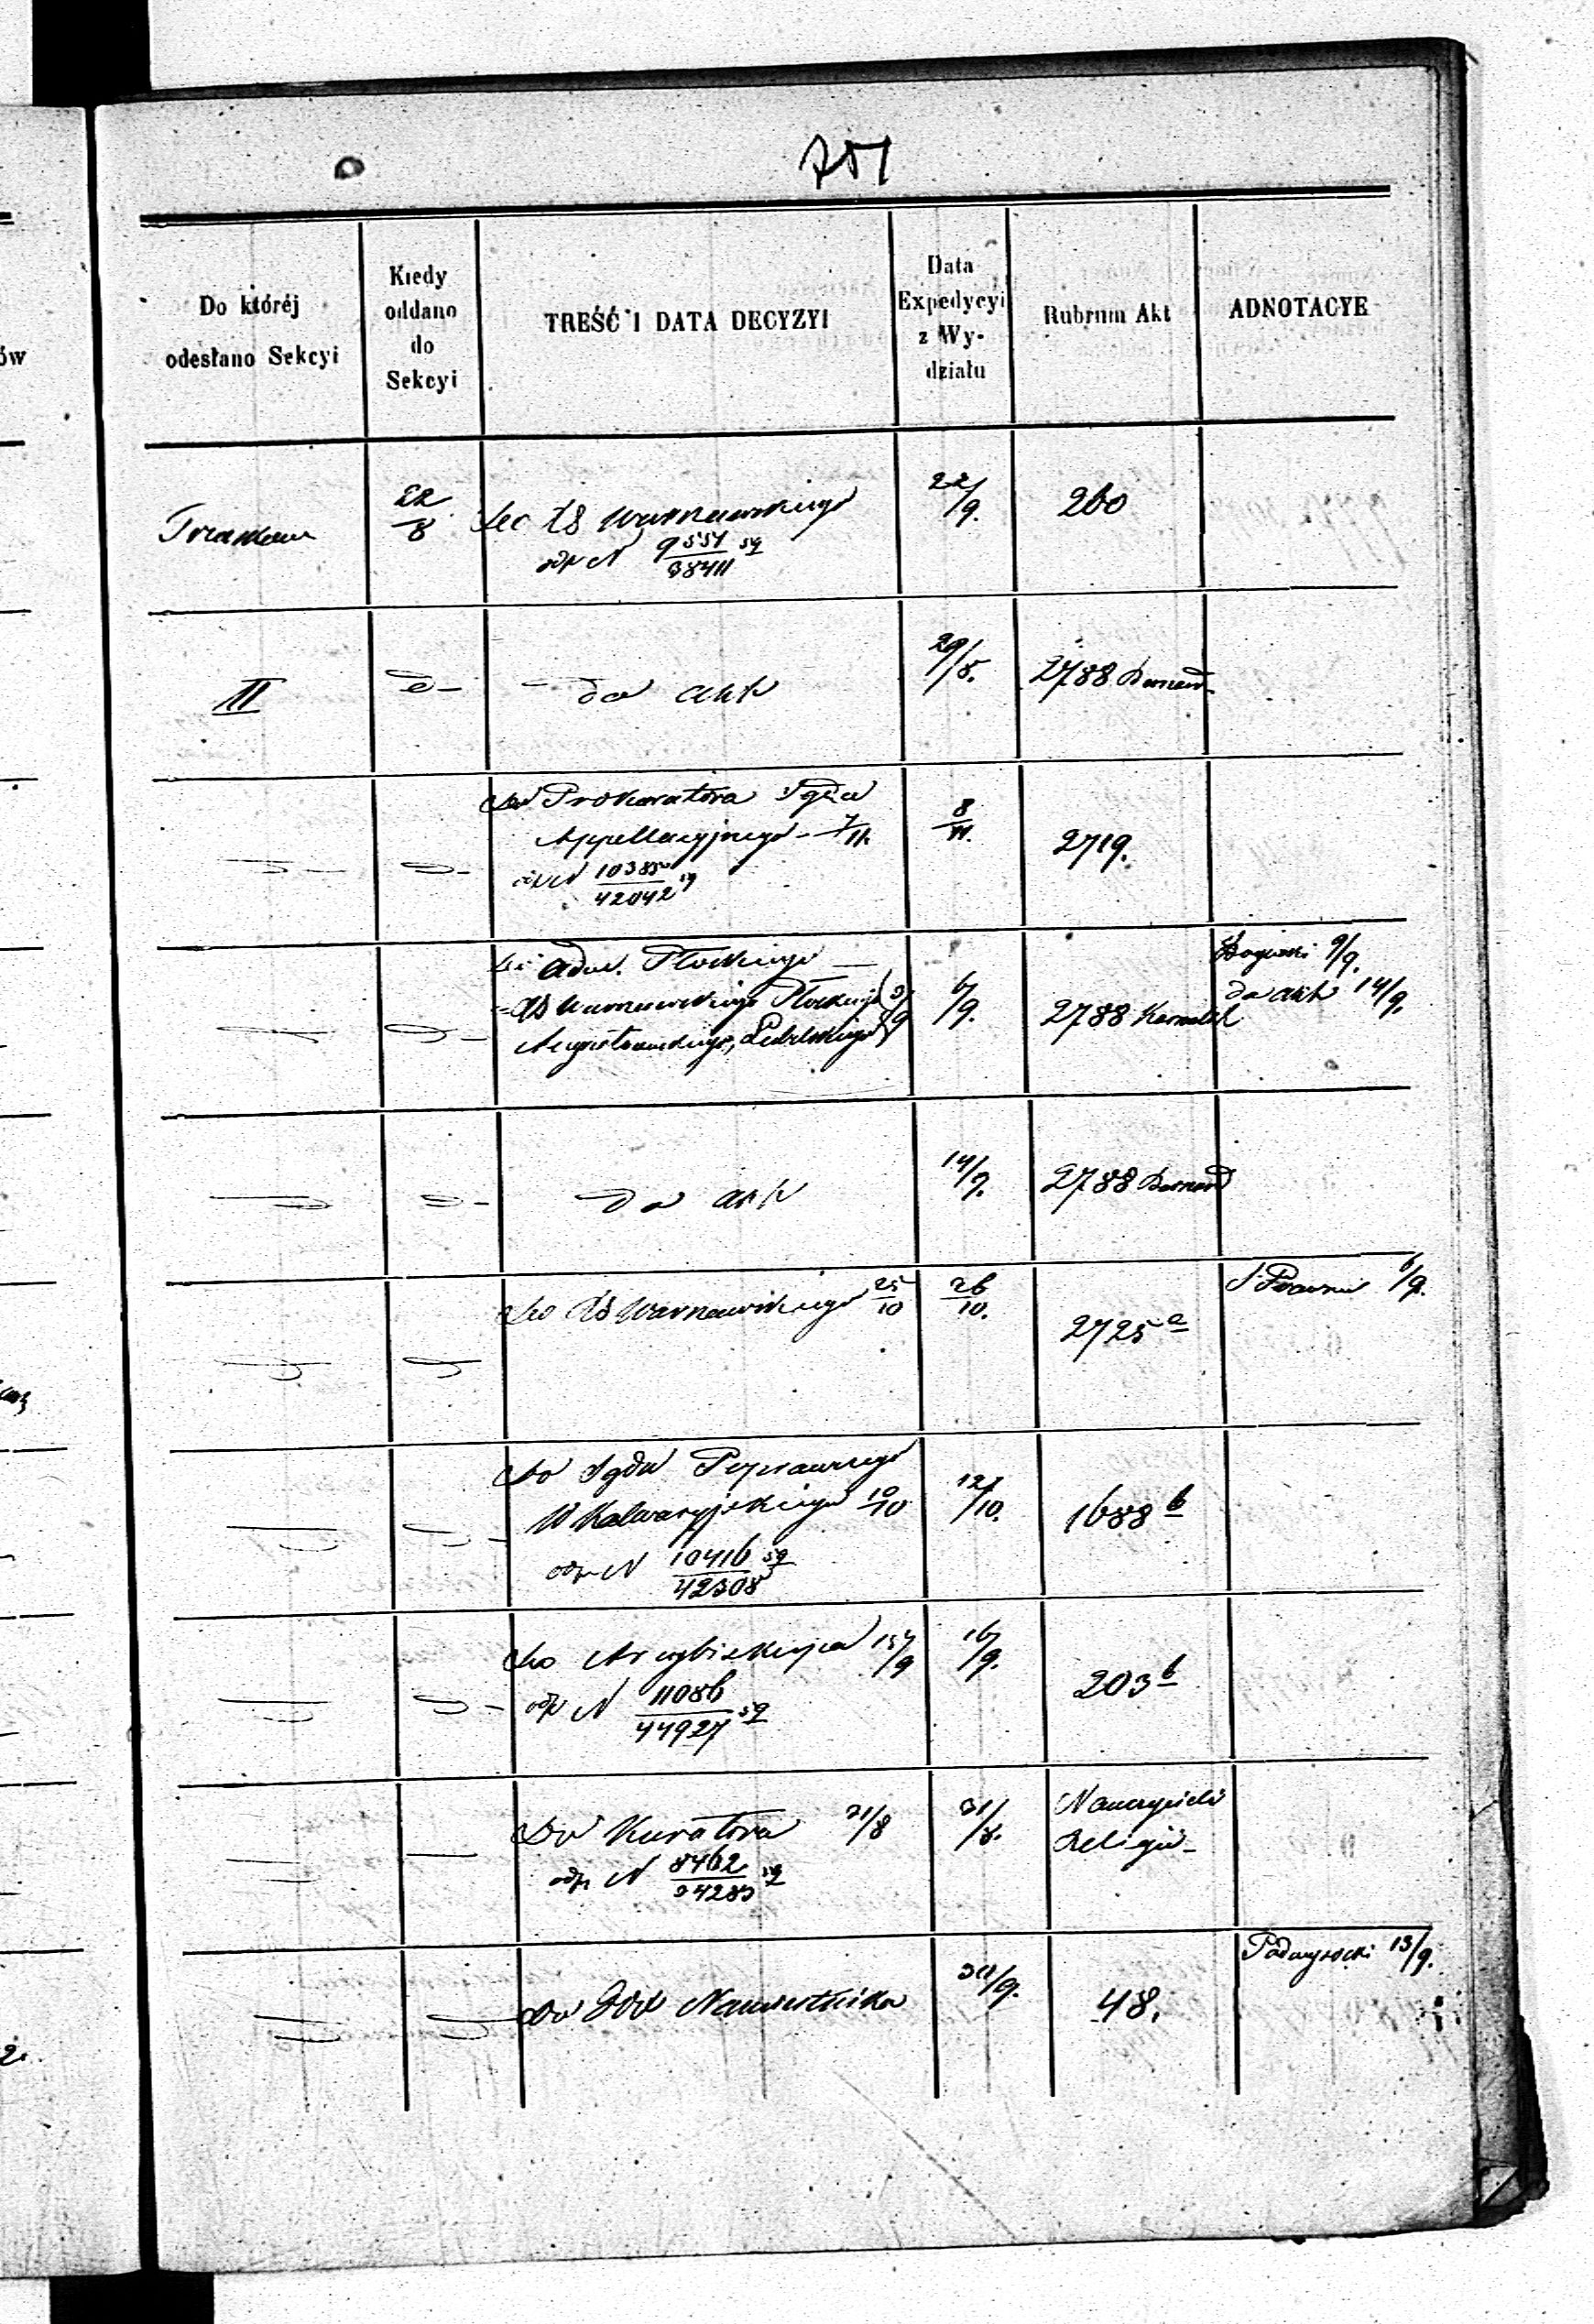 751
Do któréj
odesłano Sekcyi
Kiedy
oddano
do
Sekcyi
TREŚĆ I DATA DECYZYI
Data
Expedycyi
z Wy-
działu
Rubrum Akt
ADNOTACYE
22/8
Do RG Warszawskiego
odp N 9551/38411
22/9.
260
II
do akt
29/8.
2788 Bernard
Do Prokuratora Sądu
Appellacyjnego 7/11.
odp N 10385/42042
8/11.
2719.
Do Adm. Płockiego
Warszawskiego Płockiego
Augustowskiego, Lubelskiego
6/9.
2788 Karmelit
9/9.
do akt 14/9.
do akt
14/9.
2788 Bernard
Do RG Warszawskiego 25/10
26/10.
2725 a
6/9.
Do Sądu Poprawczego
W Kalwaryjskiego 10/10
odp N 10416/42308
12/10.
1688 b
Do Arcybiskupa 15/9
odp N 11086/44927
16/9.
203 b
Do Kuratora 31/8
odp N 8462/34283
31/8.
Nauczyciele
Religii
Do Naczelnika
30/9.
48.
Podwysocki 13/9.